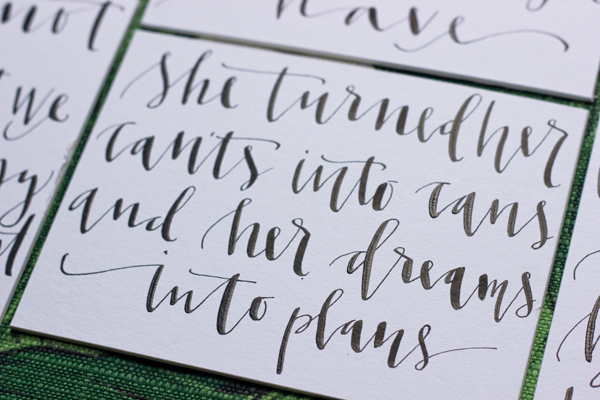 not
we
have
She turned her
can'ts into cans
and her dreams
into plans